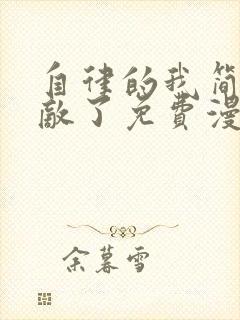 自律的我简
敌了免费漫
余暮雪